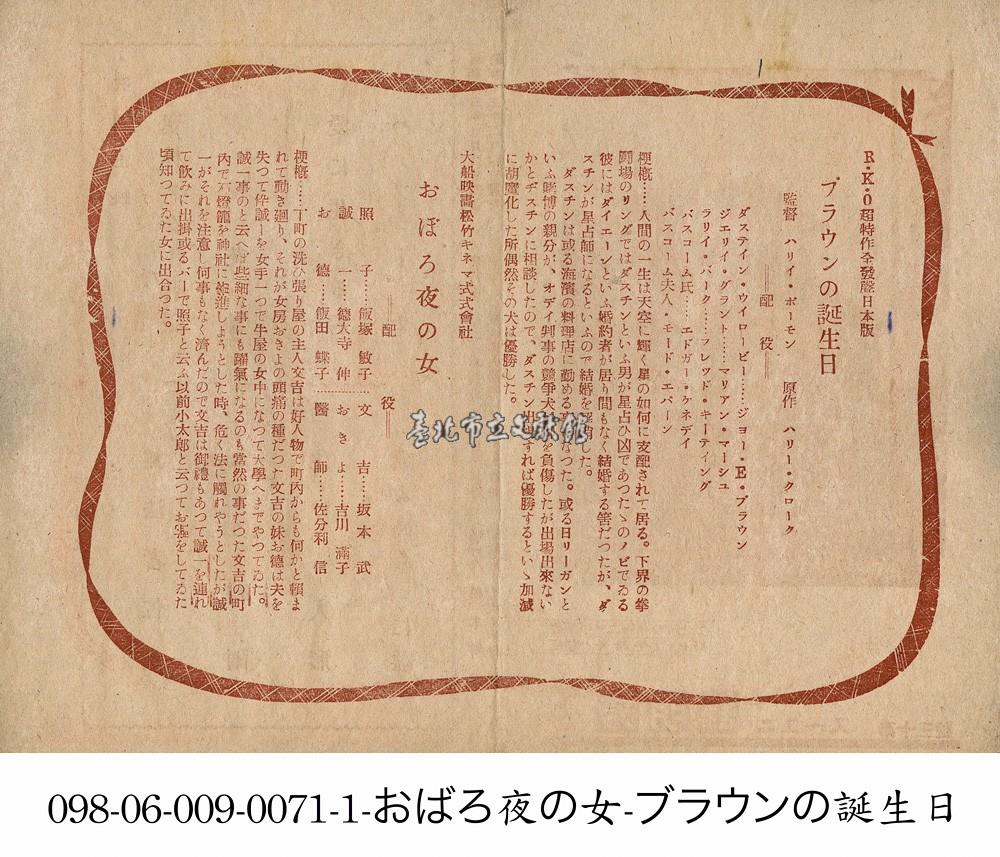 R・K・O超特作全發聲日本版
ブラウンの誕生日
監督 ハリイ・ボーモン 原作 ハリー・クローク
配役
ダスティン・ウイロービー……ジョー・E・ブラウン
ジエリイ・グラント……マリアン・マーシユ
ラリイ・バーク……フレッド・キーテイング
バスコーム氏……エドガー・ケネデイ
バスコーム夫人・モード・エバーン
梗槪……人間の一生は天空に輝く星の如何に支配されて居る。下界の拳
鬪場のリングではダスチンといふ男が星占ひ凶であつたゝのノビてゐる
彼にはダイエーンといふ婚約者が居り間もなく結婚する筈だつたが、ダ
スチンが星占師になるといふので結婚を した。
ダスチンは或る海濱の料理店に勤める なつた。或る日リーガンと
いふ賭博の親分が、オデイ判事の競爭犬 を負傷したが出場出來ない
かとヂスチンに相談したので、ダスチン出 すれば優勝するといゝ加減
に胡魔化した所偶然その犬は優勝した。
大船映畵松竹キネマ式式會社
おぼろ夜の女
配役
照子…飯塚敏子……文吉…坂本武
誠一……德大寺伸……おきよ…吉川滿子
お德……飯田蝶子……醫師……佐分利信
梗槪……下町の洗ひ張り屋の主人文吉は好人物で町內からも何かと賴ま
れて動き廻り、それが女房おきよの頭痛の種だつた文吉の妹お德は夫を
失つて伜誠一を女手一つで牛屋の女中になつて大學へまでやつてゐた。
誠一事のと云へば些細な事にも躍氣になるのも當然の事だつた文吉の町
內で 燈籠を神社に 進しようとした時、危く法に觸れやうとしたが誠
一がそれを注意し何事もなく濟んだので文吉は御禮もあつて誠一を連れ
て飮みに出掛或るバーで照子と云ふ以前小太郞と云つてお をしてゐた
頃知つてゐた女に出合つた。
臺北市立文獻館
098-06-009-0071-1-おばろ夜の女-ブラウンの誕生日